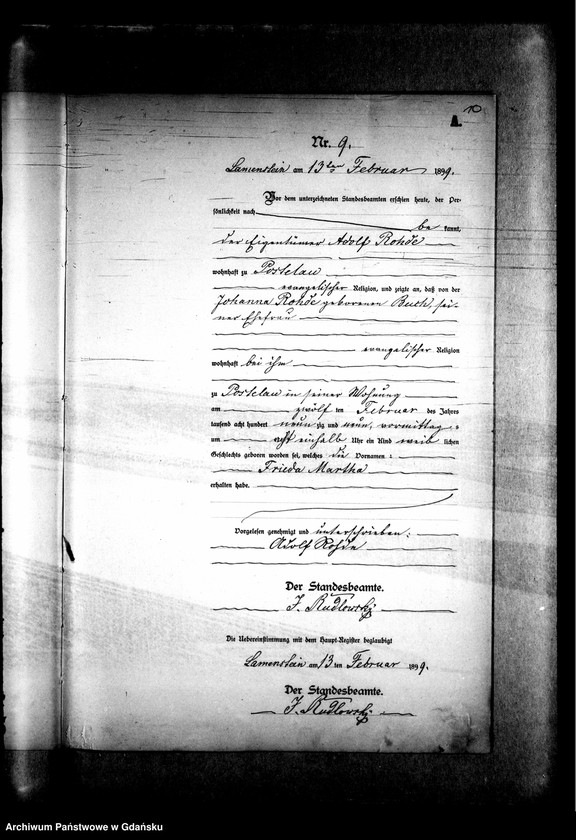 10
A.
Nr. 9.
Lamenstein am 13ten Februar 1899.
Vor dem unterzeichneten Standesbeamten erschien heute, der Per-
sönlichkeit nach
be kannt,
der Eigentümer Adolf Rohde
wohnhaft zu Postelau
evangelischer Religion, und zeigte an, daß von der
Johanna Rohde geborenen Buch, sei-
ner Ehefrau
evangelischer Religion
wohnhaft bei ihm
zu Postelau in seiner Wohnung
am zwölf ten Februar des Jahres
tausend acht hundert neun zig und neun, vormittag s
um acht einhalb Uhr ein Kind weib lichen
Geschlechts geboren worden sei, welches die Vornamen :
Frieda Martha
erhalten habe.
Vorgelesen genehmigt und unterschrieben:
Adolf Rohde
Der Standesbeamte.
J. Rudlowski
Die Uebereinstimmung mit dem Haupt-Register beglaubigt
Lamenstein am 13 ten Februar 1899.
Der Standesbeamte.
J. Rudlowski
Archiwum Państwowe w Gdańsku